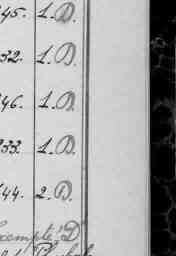 45. 1. D.
32. 1. D.
46. 1. D.
33. 1. D.
44. 2. D.
exempte, D